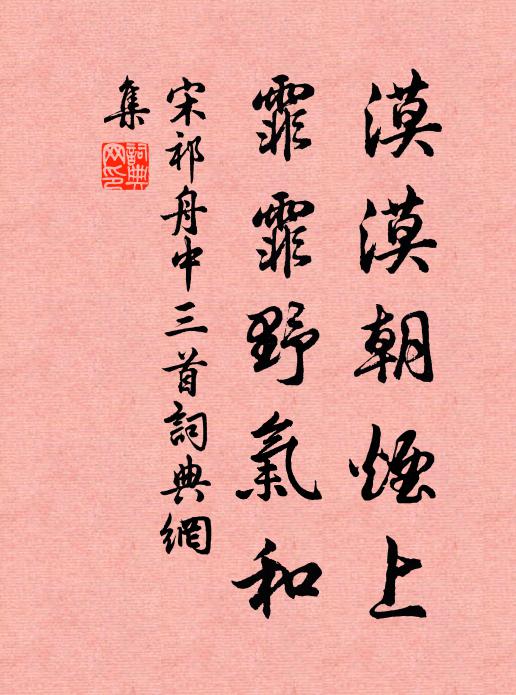 漠漠朝煙上
霏霏野氣和
宋祁舟中三首詞典網
集
詞典
网印